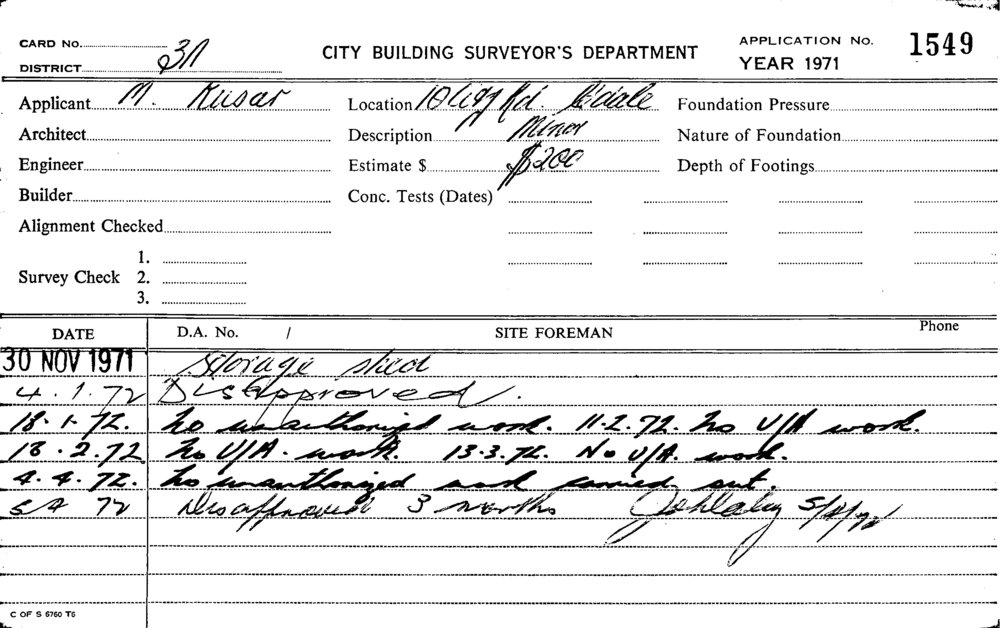 CARD No.
DISTRICT 31
CITY BUILDING SURVEYOR'S DEPARTMENT
APPLICATION No. 1549
YEAR 1971
Applicant M. Kusar
Location 10 Rd. C'dale
Foundation Pressure
Architect
Description Minor
Nature of Foundation
Engineer
Estimate $ $200
Depth of Footings
Builder
Conc. Tests (Dates)
Alignment Checked
Survey Check 1.
2.
3.
DATE D.A. No. / SITE FOREMAN Phone
30 NOV 1971 Storage shed
4.1.72 Disapproved.
18.1.72. No unauthorized work. 11-2.72. No U/A work.
18.2.72 No U/A. work. 13.3.72. No U/A. work.
4.4.72. No unauthorized work carried out.
5 4 72 Disapproved 3 months 5/4/72
C OF S 6760 T6